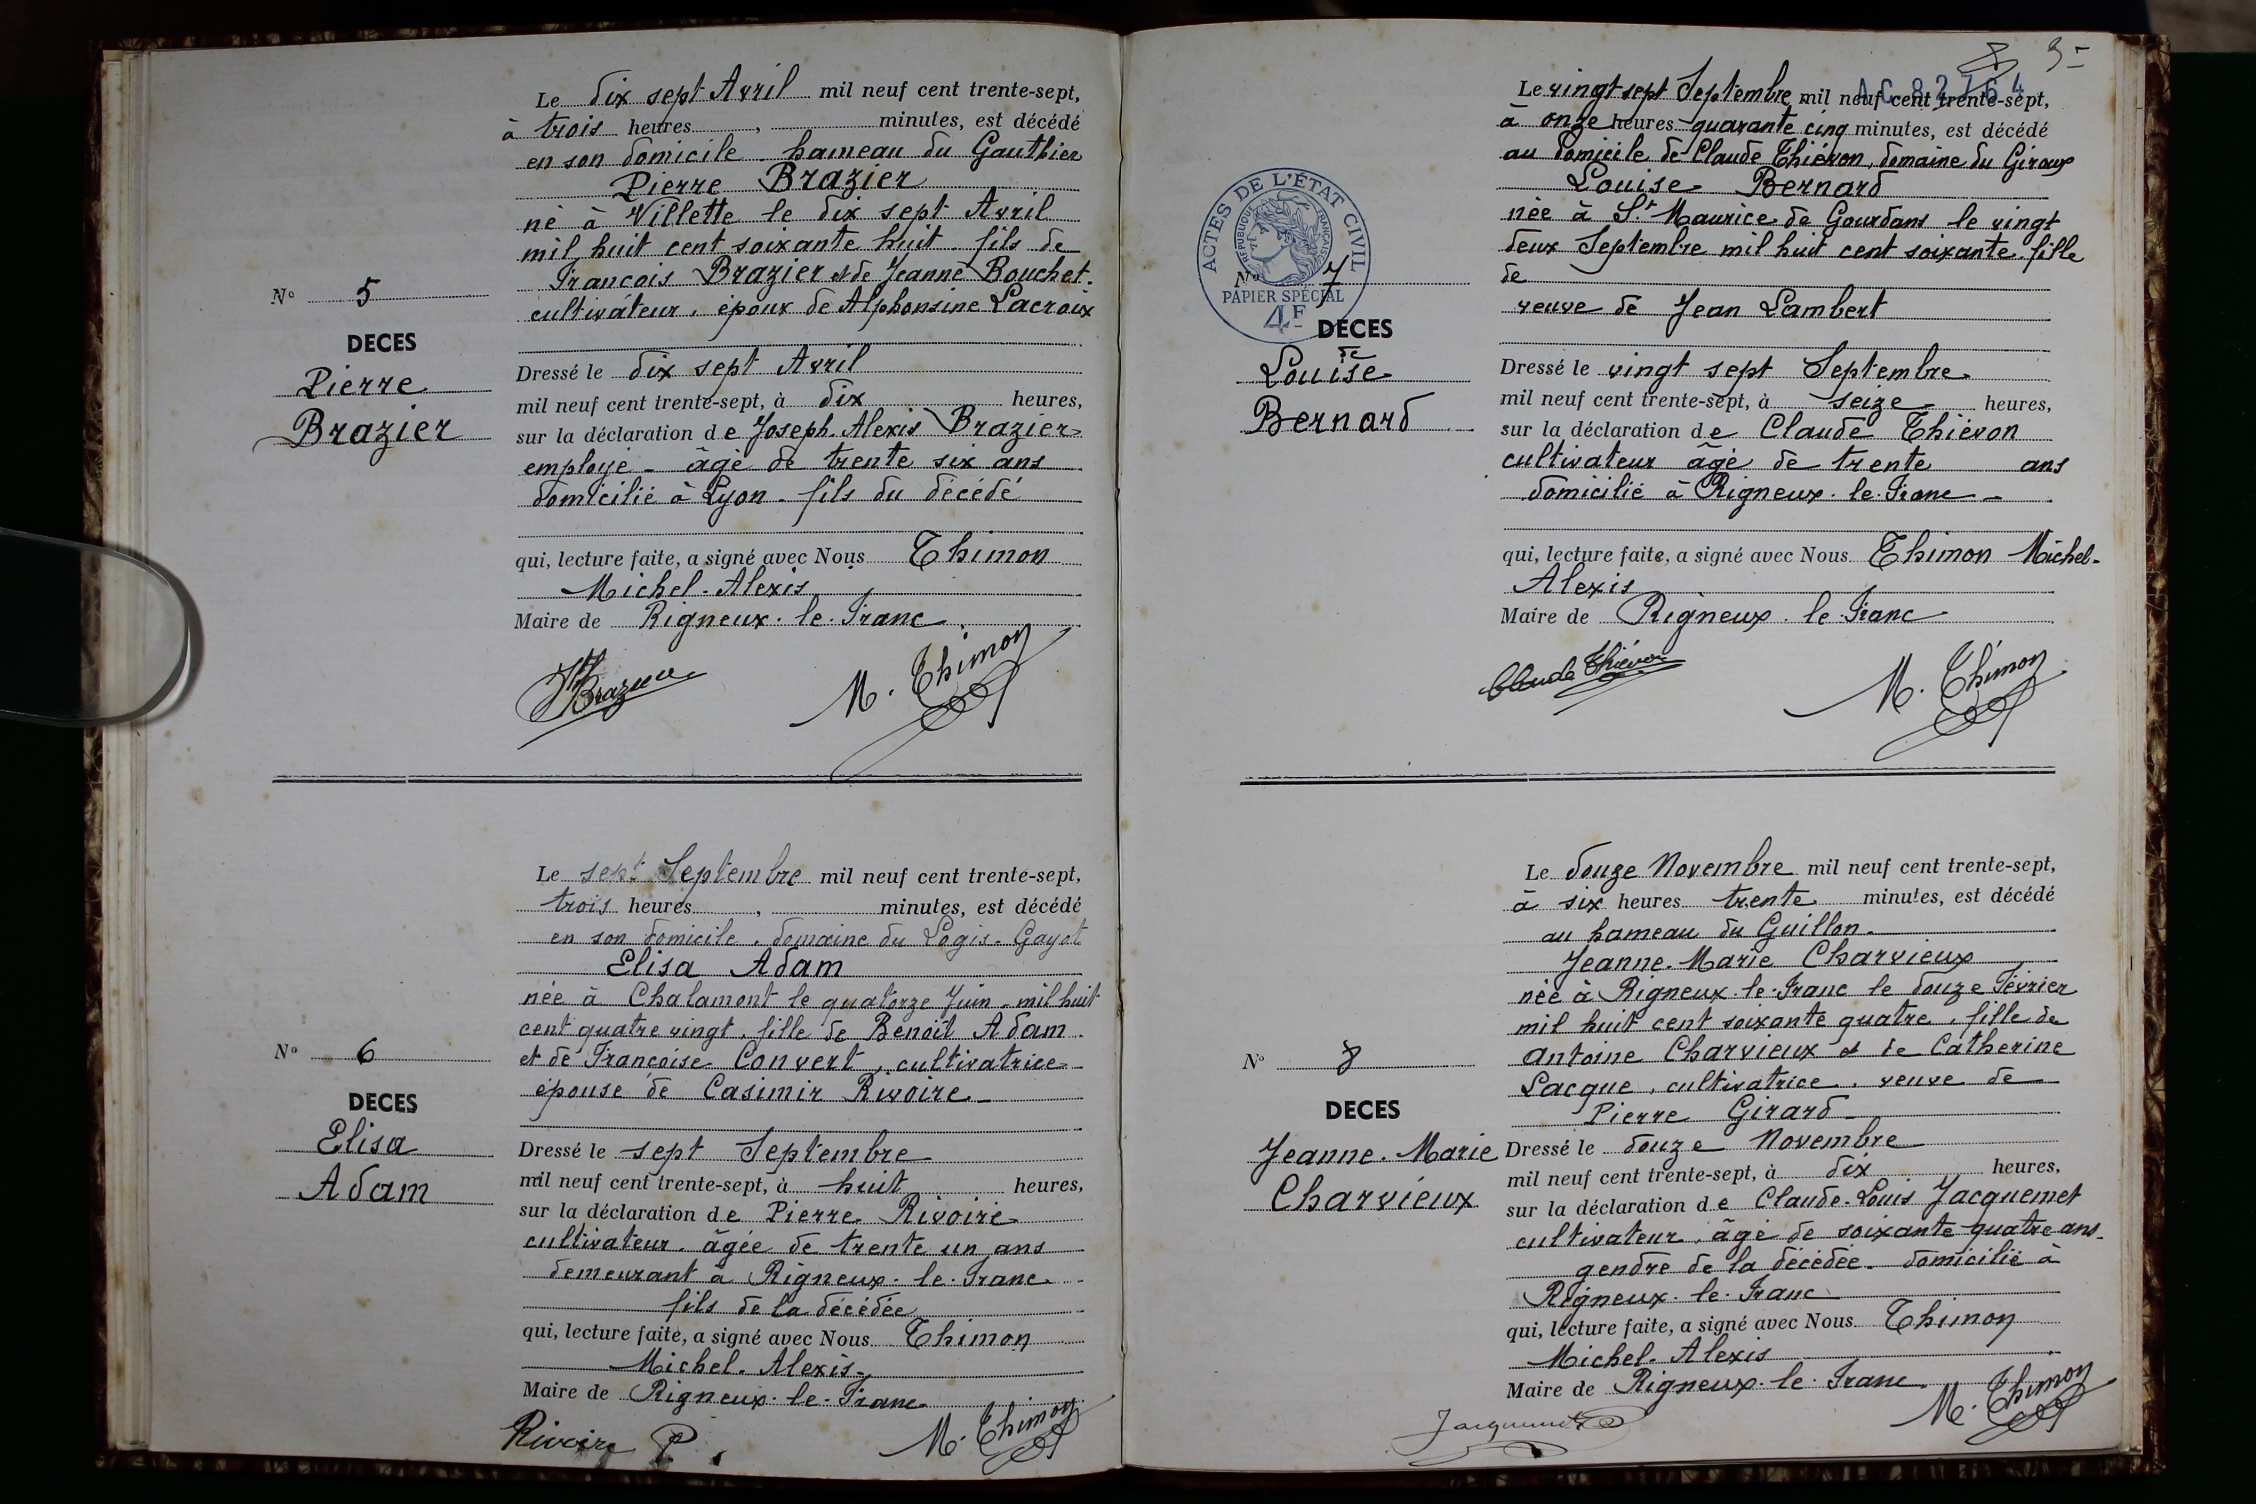 Le dix sept Avril mil neuf cent trente-sept,
à trois heures, minutes, est décédé
en son domicile . hameau du Gauthier
Pierre Brazier
né à Villette le dix sept Avril
mil huit cent soixante huit . fils de
François Brazier et de Jeanne Bouchet.
cultivateur . époux de Alphonsine Lacroix
N° 5
DECES
Pierre
Brazier
Dressé le dix sept Avril
mil neuf cent trente-sept, à dix heures,
sur la déclaration de Joseph. Alexis Brazier-
employé - âgé de trente six ans
domicilié à Lyon - fils du décédé
qui, lecture faite, a signé avec Nous Thimon
Michel - Alexis
Maire de Rigneux . le . Franc
M. Thimon
Le sept Septembre mil neuf cent trente-sept,
trois heures, minutes, est décédé
en son domicile . domaine du Logis - Gayot
Elisa Adam
née à Chalamont le quatorze Juin - mil huit
cent quatre vingt . fille de Benoît Adam .
et de Françoise Convert , cultivatrice
épouse de Casimir Rivoire -
N° 6
DECES
Elisa
Adam
Dressé le sept Septembre
mil neuf cent trente-sept, à huit heures,
sur la déclaration de Pierre Rivoire
cultivateur . âgée de trente un ans
demeurant à Rigneux . le . Franc .
fils de la décédée
qui, lecture faite, a signé avec Nous Thimon
Michel . Alexis -
Maire de Rigneux . le . Franc
Rivoire P.
M. Thimon
AC 82764
Le vingt sept Septembre mil neuf cent trente-sept,
à onze heures quarante cinq minutes, est décédé
au domicile de Claude Thiévon, domaine du Giroux
Louise Bernard
née à St Maurice de Gourdans le vingt
deux Septembre mil huit cent soixante . fille
de
veuve de Jean Lambert
ACTES DE L'ÉTAT CIVIL
RÉPUBLIQUE FRANÇAISE
PAPIER SPÉCIAL
4F
N° 7
DECES
de
Louise
Bernard
Dressé le vingt sept Septembre
mil neuf cent trente-sept, à seize heures,
sur la déclaration de Claude Thiévon
cultivateur âgé de trente ans
domicilié à Rigneux . le . Franc -
qui, lecture faite, a signé avec Nous Thimon Michel-
Alexis
Maire de Rigneux . le . Franc
Claude Thiévon
M. Thimon
Le douze Novembre mil neuf cent trente-sept,
à six heures trente minutes, est décédé
au hameau du Guillon -
Jeanne . Marie Charvieux
née à Rigneux . le . Franc le douze Février
mil huit cent soixante quatre . fille de
Antoine Charvieux et de Catherine
Lacque , cultivatrice . veuve de
Pierre Girard -
N° 8
DECES
Jeanne . Marie
Charvieux
Dressé le douze Novembre
mil neuf cent trente-sept, à dix heures,
sur la déclaration de Claude . Louis Jacquemet
cultivateur . âgé de soixante quatre ans -
gendre de la décédée - domicilié à
Rigneux . le . Franc
qui, lecture faite, a signé avec Nous Thimon
Michel . Alexis
Maire de Rigneux . le . Franc
Jacquemet
M. Thimon